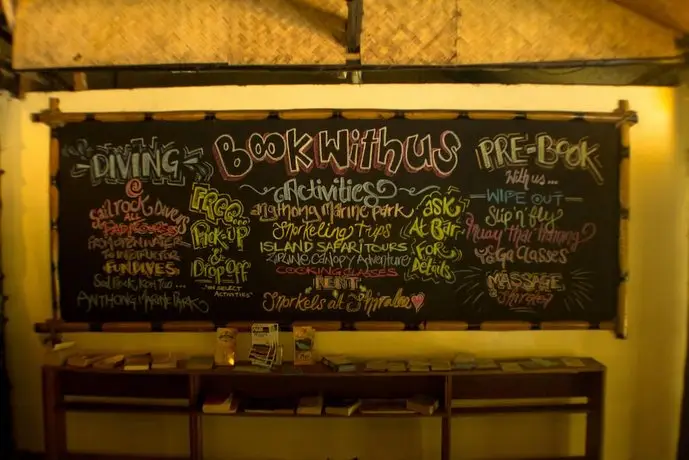 DIVING
@
Sail rock Divers
ALL
PADI COURSES
FROM OPEN WATER
TO INSTRUCTOR
FUN DIVES
Sail Rock, Koh Tao ...
ANGTHONG MARINE PARK
FREE
Pick up
&
Drop OFF
"ON SELECT
ACTIVITIES"
BOOK WITH US
ACTIVITIES
Angthong Marine Park
Snorkeling Trips
ISLAND SAFARI TOURS
ZIPLINE CANOPY Adventure
COOKING CLASSES
RENT
Snorkels at Shiralea
ASK
At BAR
FOR
Details
PRE-BOOK
With us ...
WIPE OUT
Slip n' Fly
Muay thai training
YOGA CLASSES
MASSAGE
@ Shiralea